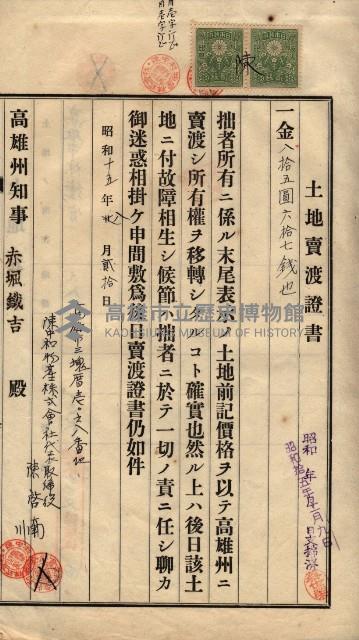 土地賣渡證書
一金八拾五圓六拾七錢也
拙者所有ニ係ル末尾表示ノ土地前記價格ヲ以テ高雄州ニ
賣渡シ所有權ヲ移轉シタルコト確實也然ル上ハ後日該土
地ニ付故障相生シ候節ハ拙者ニ於テ一切ノ責ニ任シ聊カ
御迷惑相掛ケ申間敷爲後日賣渡證書仍如件
昭和十五年 八 月貳拾日
陳中和物產株式會社代表取締役
陳啓南
川
高雄州知事 赤堀鐵吉 殿
陳
高雄市立歷史博物館
KAOHSIUNG MUSEUM OF HISTORY